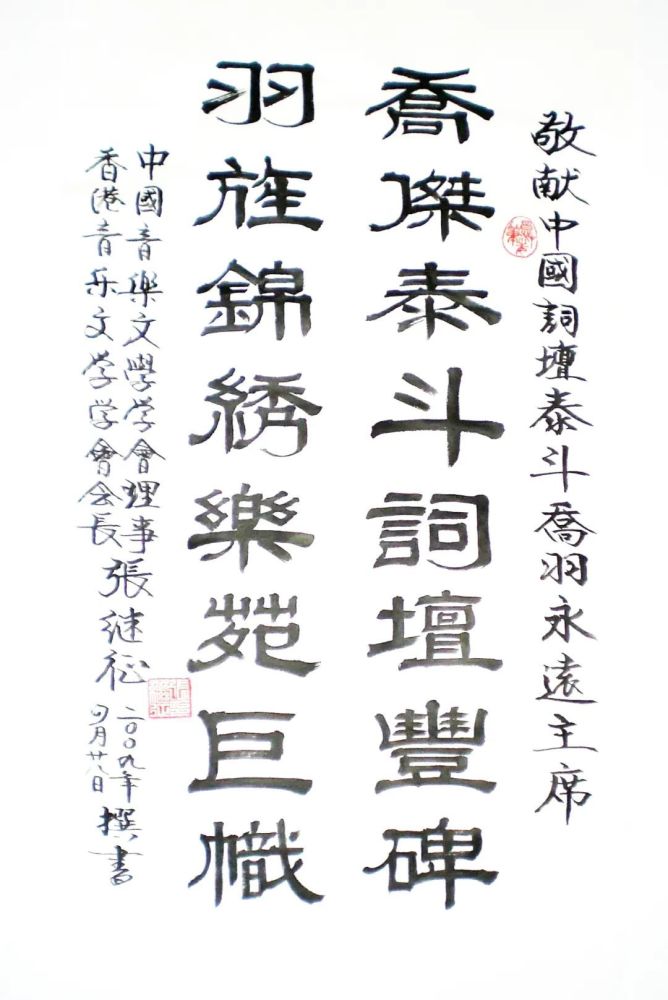 敬献中國詞壇泰斗喬羽永遠主席
喬傑泰斗詞壇豐碑
羽旌錦綉樂苑巨幟
中國音樂文學学會理事
香港音乐文学学會会長
張继征
二〇〇九年
四月廿八日
撰書